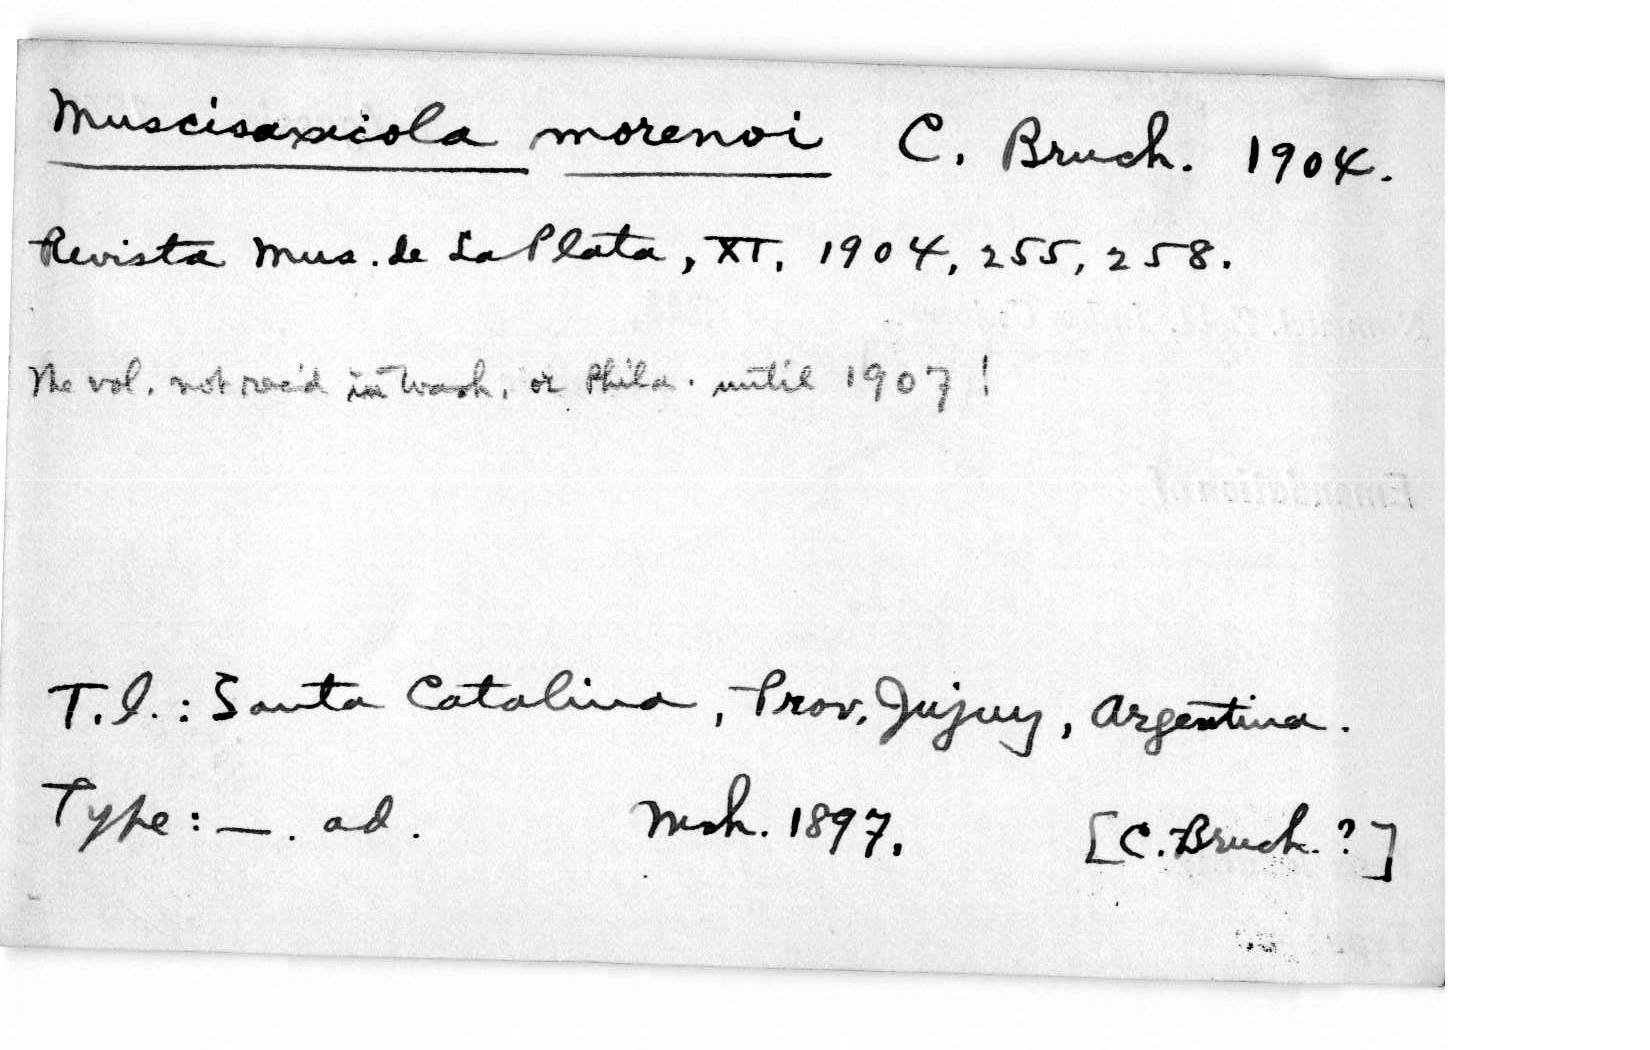 Muscisaxicola morenoi C. Bruch. 1904.
Revista Mus. de La Plata, XI, 1904, 255, 258.
The vol. not rec'd in Wash. or Phila. until 1907!
T.l.: Santa Catalina, Prov. Jujuy, Argentina.
Type: —. ad. Mch. 1897. [C. Bruch.?]